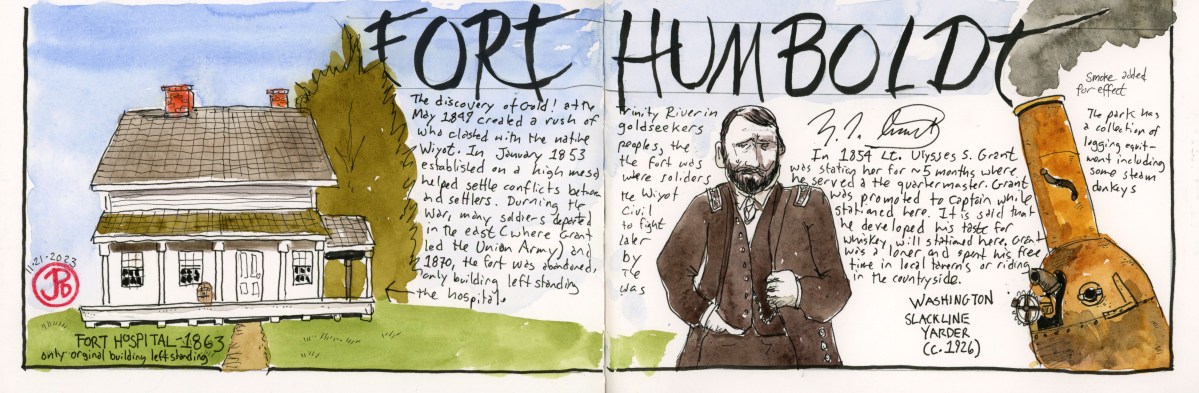 FORT HUMBOLDt
The discovery of Gold! at the Trinity River in
May 1849 created a rush of goldseekers
who clashed with the native peoples, the
Wiyot. In January 1853 the fort was
established on a high mesa were soliders
helped settle conflicts between the Wiyot
and settlers. Durning the Civil
War, many soldiers departed to fight
in the east (where Grant later
led the Union Army) and by
1870, the fort was abandoned. The
only building left standing was
the hospital.
11-21-2023
JPD
FORT HOSPITAL-1863
"only orginal building left standing"
U.S. Grant
In 1854 Lt. Ulysses S. Grant
was station her for ~5 months where
he served a the quartermaster. Grant
was promoted to Captain while
stationed here. It is said that
he developed his taste for
whiskey will stationed here. Grant
was a loner and spent his free
time in local taverns or riding
in the countryside.
WASHINGTON
SLACKLINE
YARDER
(C. 1926)
Smoke added
for effect
The park has
a collection of
logging equit-
ment including
some steam
donkeys